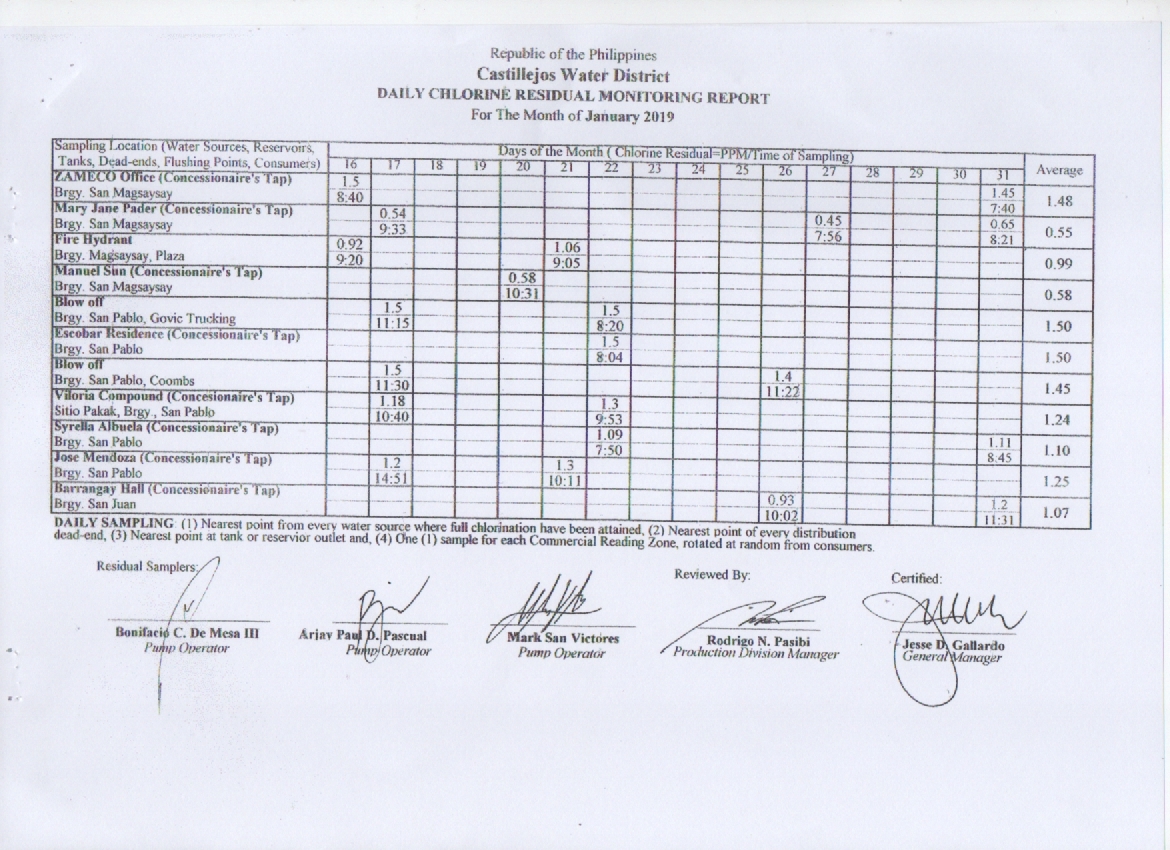 Republic of the Philippines
Castillejos Water District
DAILY CHLORINE RESIDUAL MONITORING REPORT
For The Month of January 2019
Sampling Location (Water Sources, Reservoirs, Tanks, Dead-ends, Flushing Points, Consumers) Days of the Month ( Chlorine Residual=PPM/Time of Sampling) Average
16 17 18 19 20 21 22 23 24 25 26 27 28 29 30 31
ZAMECO Office (Concessionaire's Tap) 1.5 1.45 1.48
Brgy. San Magsaysay 8:40 7:40
Mary Jane Pader (Concessionaire's Tap) 0.54 0.45 0.65 0.55
Brgy. San Magsaysay 9:33 7:56 8:21
Fire Hydrant 0.92 1.06 0.99
Brgy. Magsaysay, Plaza 9:20 9:05
Manuel Sun (Concessionaire's Tap) 0.58 0.58
Brgy. San Magsaysay 10:31
Blow off 1.5 1.5 1.50
Brgy. San Pablo, Govic Trucking 11:15 8:20
Escobar Residence (Concessionaire's Tap) 1.5 1.50
Brgy. San Pablo 8:04
Blow off 1.5 1.4 1.45
Brgy. San Pablo, Coombs 11:30 11:22
Viloria Compound (Concesionaire's Tap) 1.18 1.3 1.24
Sitio Pakak, Brgy., San Pablo 10:40 9:53
Syrella Albuela (Concessionaire's Tap) 1.09 1.11 1.10
Brgy. San Pablo 7:50 8:45
Jose Mendoza (Concessionaire's Tap) 1.2 1.3 1.25
Brgy. San Pablo 14:51 10:11
Barrangay Hall (Concessionaire's Tap) 0.93 1.2 1.07
Brgy. San Juan 10:02 11:31
DAILY SAMPLING (1) Nearest point from every water source where full chlorination have been attained, (2) Nearest point of every distribution
dead-end, (3) Nearest point at tank or reservior outlet and, (4) One (1) sample for each Commercial Reading Zone, rotated at random from consumers.
Residual Samplers: Reviewed By: Certified:
Bonifacio C. De Mesa III Arjay Paul D. Pascual Mark San Victores Rodrigo N. Pasibi Jesse D. Gallardo
Pump Operator Pump Operator Pump Operator Production Division Manager General Manager